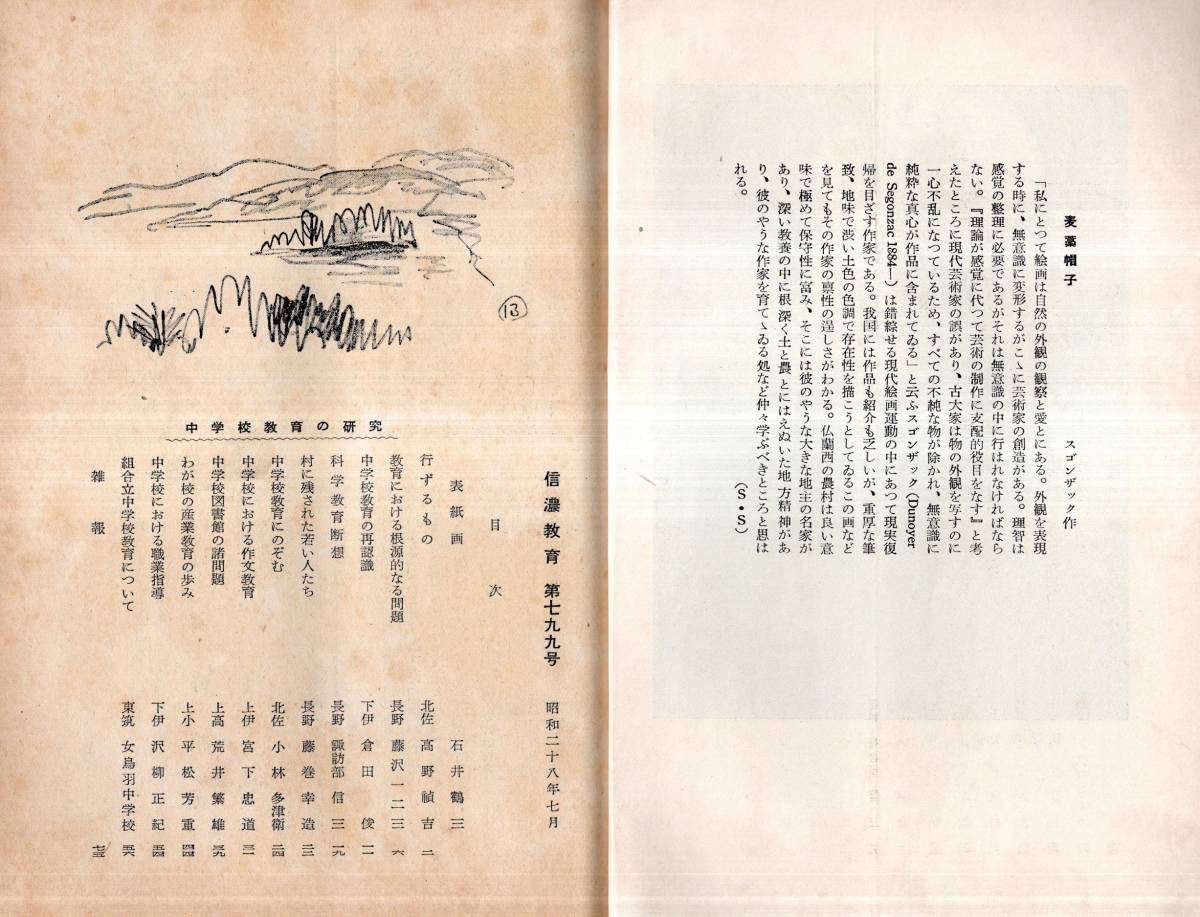 麦藁帽子
スゴンザック作
「私にとつて絵画は自然の外観の観察と愛とにある。外観を表現
する時に、無意識に変形するがこゝに芸術家の創造がある。理智は
感覚の整理に必要であるがそれは無意識の中に行はれなければなら
ない。『理論が感覚に代つて芸術の制作に支配的役目をなす』と考
えたところに現代芸術家の誤があり、古大家は物の外観を写すのに
一心不乱になつているため、すべての不純な物が除かれ、無意識に
純粋な真心が作品に含まれてゐる」と云ふスゴンザック(Dunoyer
de Segonzac 1884—)は錯綜せる現代絵画運動の中にあつて現実復
帰を目ざす作家である。我国には作品も紹介も乏しいが、重厚な筆
致、地味で渋い土色の色調で存在性を描こうとしてゐるこの画など
を見てもその作家の禀性の逞しさがわかる。仏蘭西の農村は良い意
味で極めて保守性に富み、そこには彼のやうな大きな地主の名家が
あり、深い教養の中に根深く土と農とにはえぬいた地方精神があ
り、彼のやうな作家を育てゝゐる処など仲々学ぶべきところと思は
れる。
(S・S)
13
信濃教育 第七九九号 昭和二十八年七月
目次
表紙画 石井鶴三
行ずるもの 北佐 高野禎吉 二
中学校教育の研究
教育における根源的なる問題 長野 藤沢一二三 六
中学校教育の再認識 下伊 倉田俊 一二
科学教育断想 長野 諏訪部信三 一九
村に残された若い人たち 長野 藤巻幸造 二三
中学校教育にのぞむ 北佐 小林多津衛 二四
中学校における作文教育 上伊 宮下忠道 三一
中学校図書館の諸問題 上高 荒井繁雄 三九
わが校の産業教育の歩み 上小 平松芳重 四四
中学校における職業指導 下伊 沢柳正紀 五四
組合立中学校教育について 東筑 女鳥羽中学校 五六
雑報